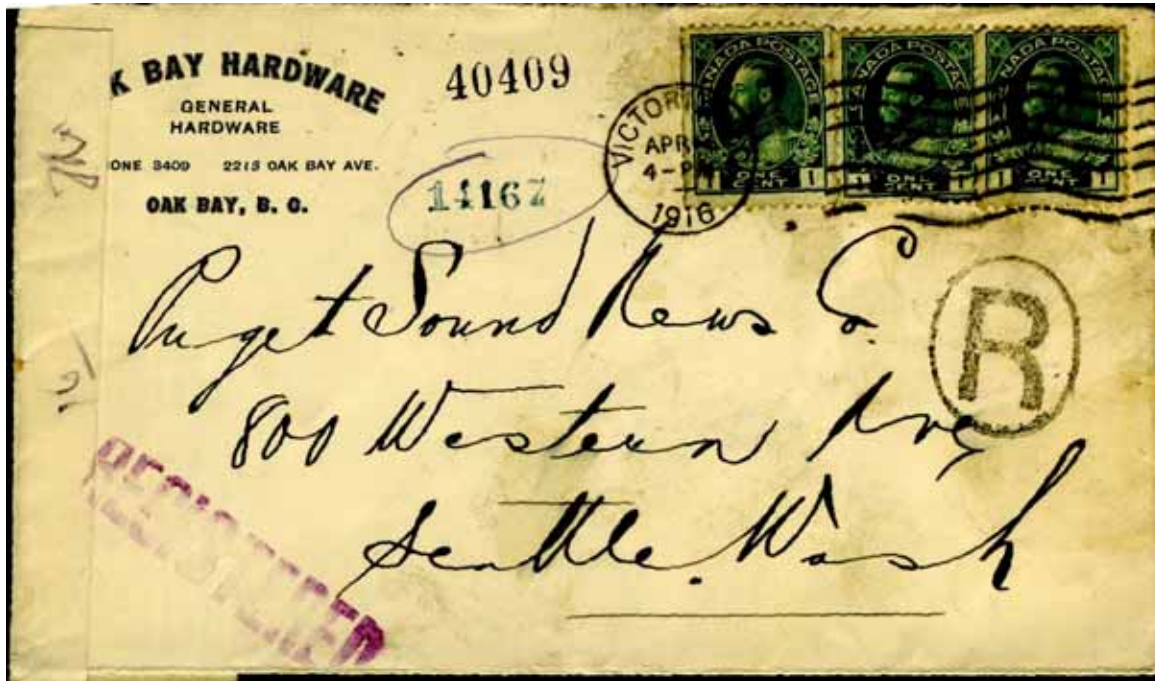 K BAY HARDWARE
GENERAL
HARDWARE
ONE 3409 2213 OAK BAY AVE.
OAK BAY, B. C.
40409
14167
VICTOR
APR
4-P
1916
NADA POSTAGE
ONE
CENT
1
NADA POSTAGE
1 ONE 1
CENT
NADA POSTA
ONE
CENT
1
R
Puget Sound News Co.
800 Western Ave
Seattle. Wash
REGISTERED